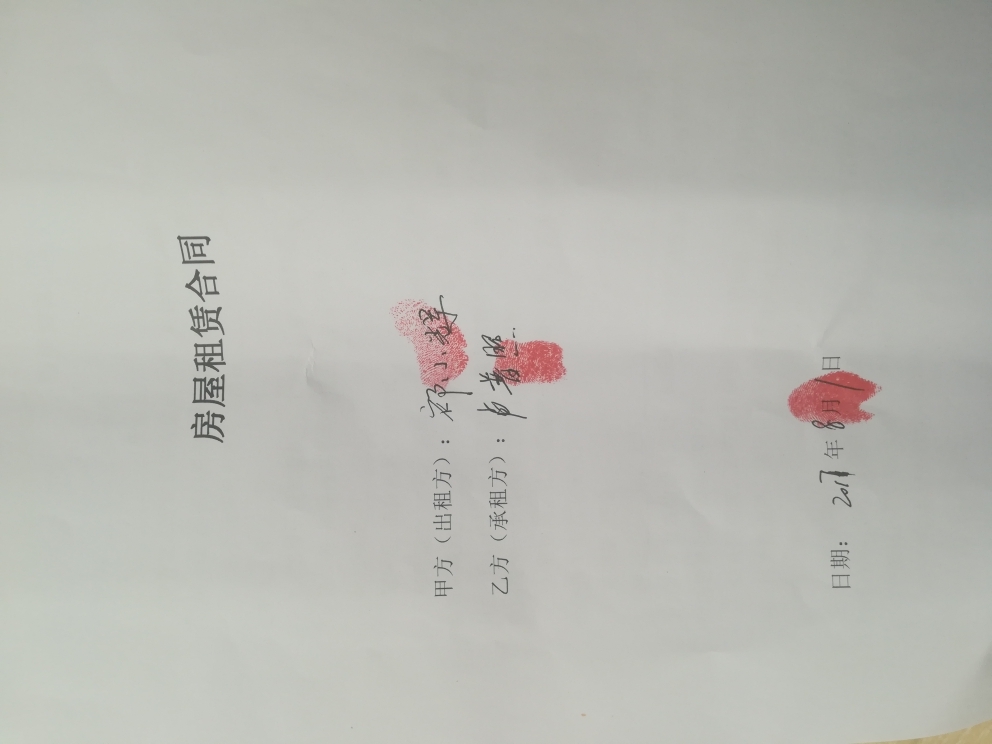 房屋租赁合同
甲方（出租方）：祁小辉
乙方（承租方）：
日期： 2017年8月1日